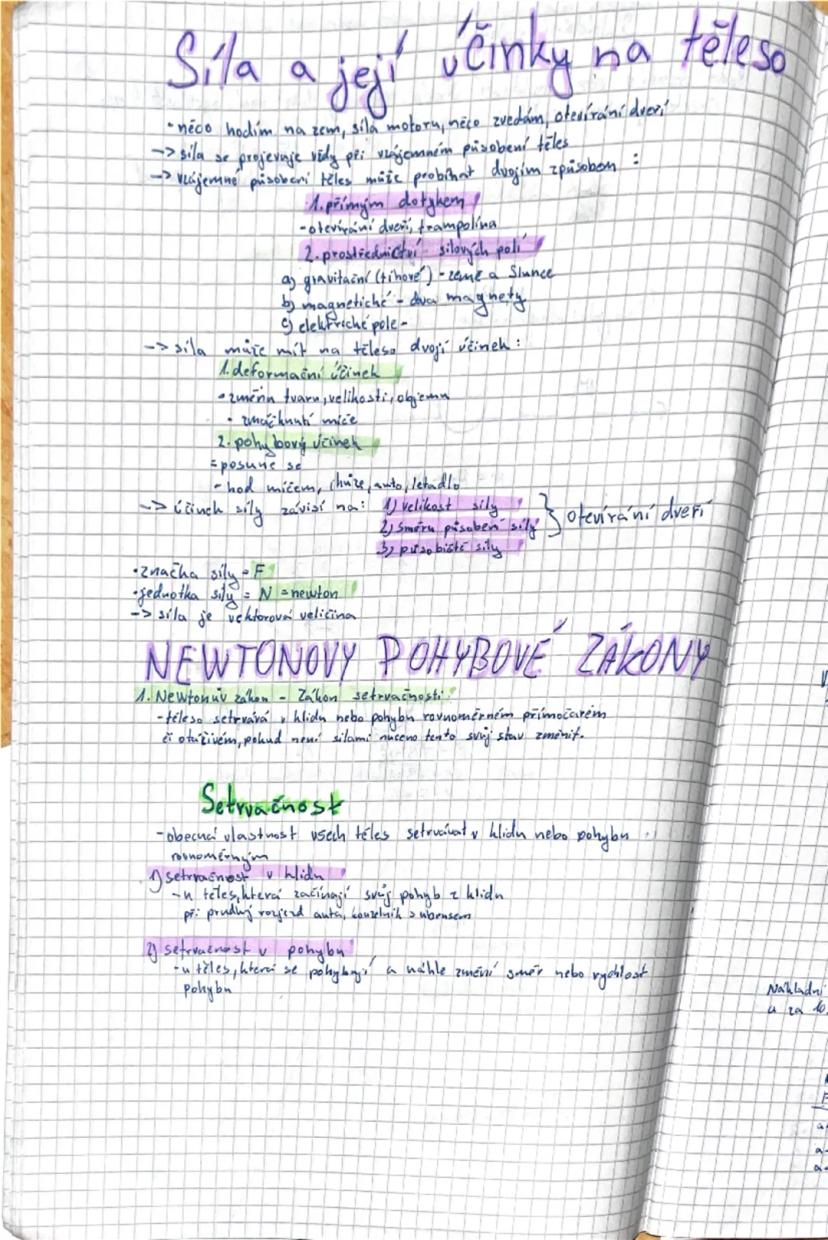 Síla a její účinky na těleso
- něco hodím na zem, síla motoru, něco zvedám, otevírání dveří
-> síla se projevuje vždy při vzájemném působení těles
-> vzájemné působení těles může probíhat dvojím způsobem :
1. přímým dotykem
- otevírání dveří, trampolína
2. prostřednictví silových polí
a) gravitační (tíhové) - země a Slunce
b) magnetické - dva magnety
c) elektrické pole -
-> síla může mít na těleso dvojí účinek :
1. deformační účinek
- změna tvaru, velikosti, objemu
- zmáčknutí míče
2. pohybový účinek
= posune se
- hod míčem, chůze, auto, letadlo
-> účinek síly závisí na: 1) velikost síly
2) směru působení síly } otevírání dveří
3) působiště síly
• značka síly = F
• jednotka síly = N = newton
-> síla je vektorová veličina
NEWTONOVY POHYBOVÉ ZÁKONY
1. Newtonův zákon - Zákon setrvačnosti:
- těleso setrvává v klidu nebo pohybu rovnoměrném přímočarém
či otáčivém, pokud není silami nuceno tento svůj stav změnit.
Setrvačnost
- obecná vlastnost všech těles setrvávat v klidu nebo pohybu
rovnoměrným
1) setrvačnost v klidu
- u těles, která začínají svůj pohyb z klidu
při prudký rozjezd auta, kouzelník s ubrusem
2) setrvačnost v pohybu
- u těles, která se pohybují a náhle změní směr nebo rychlost
pohybu
Nákladní
u za 10